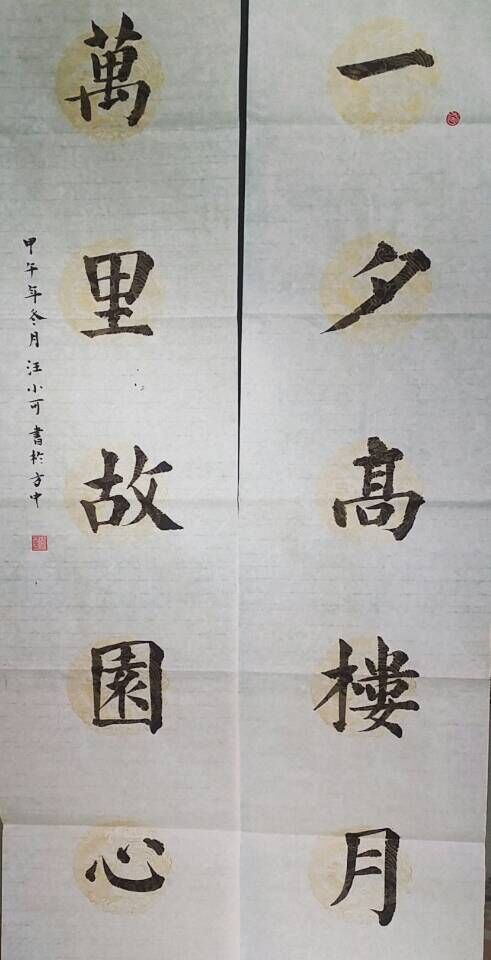 一夕高樓月
萬里故園心
甲午年冬月汪小可書於方中